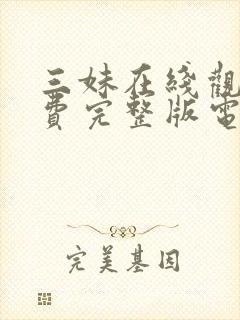 三妹在綫觀
費完整版電
完美基因